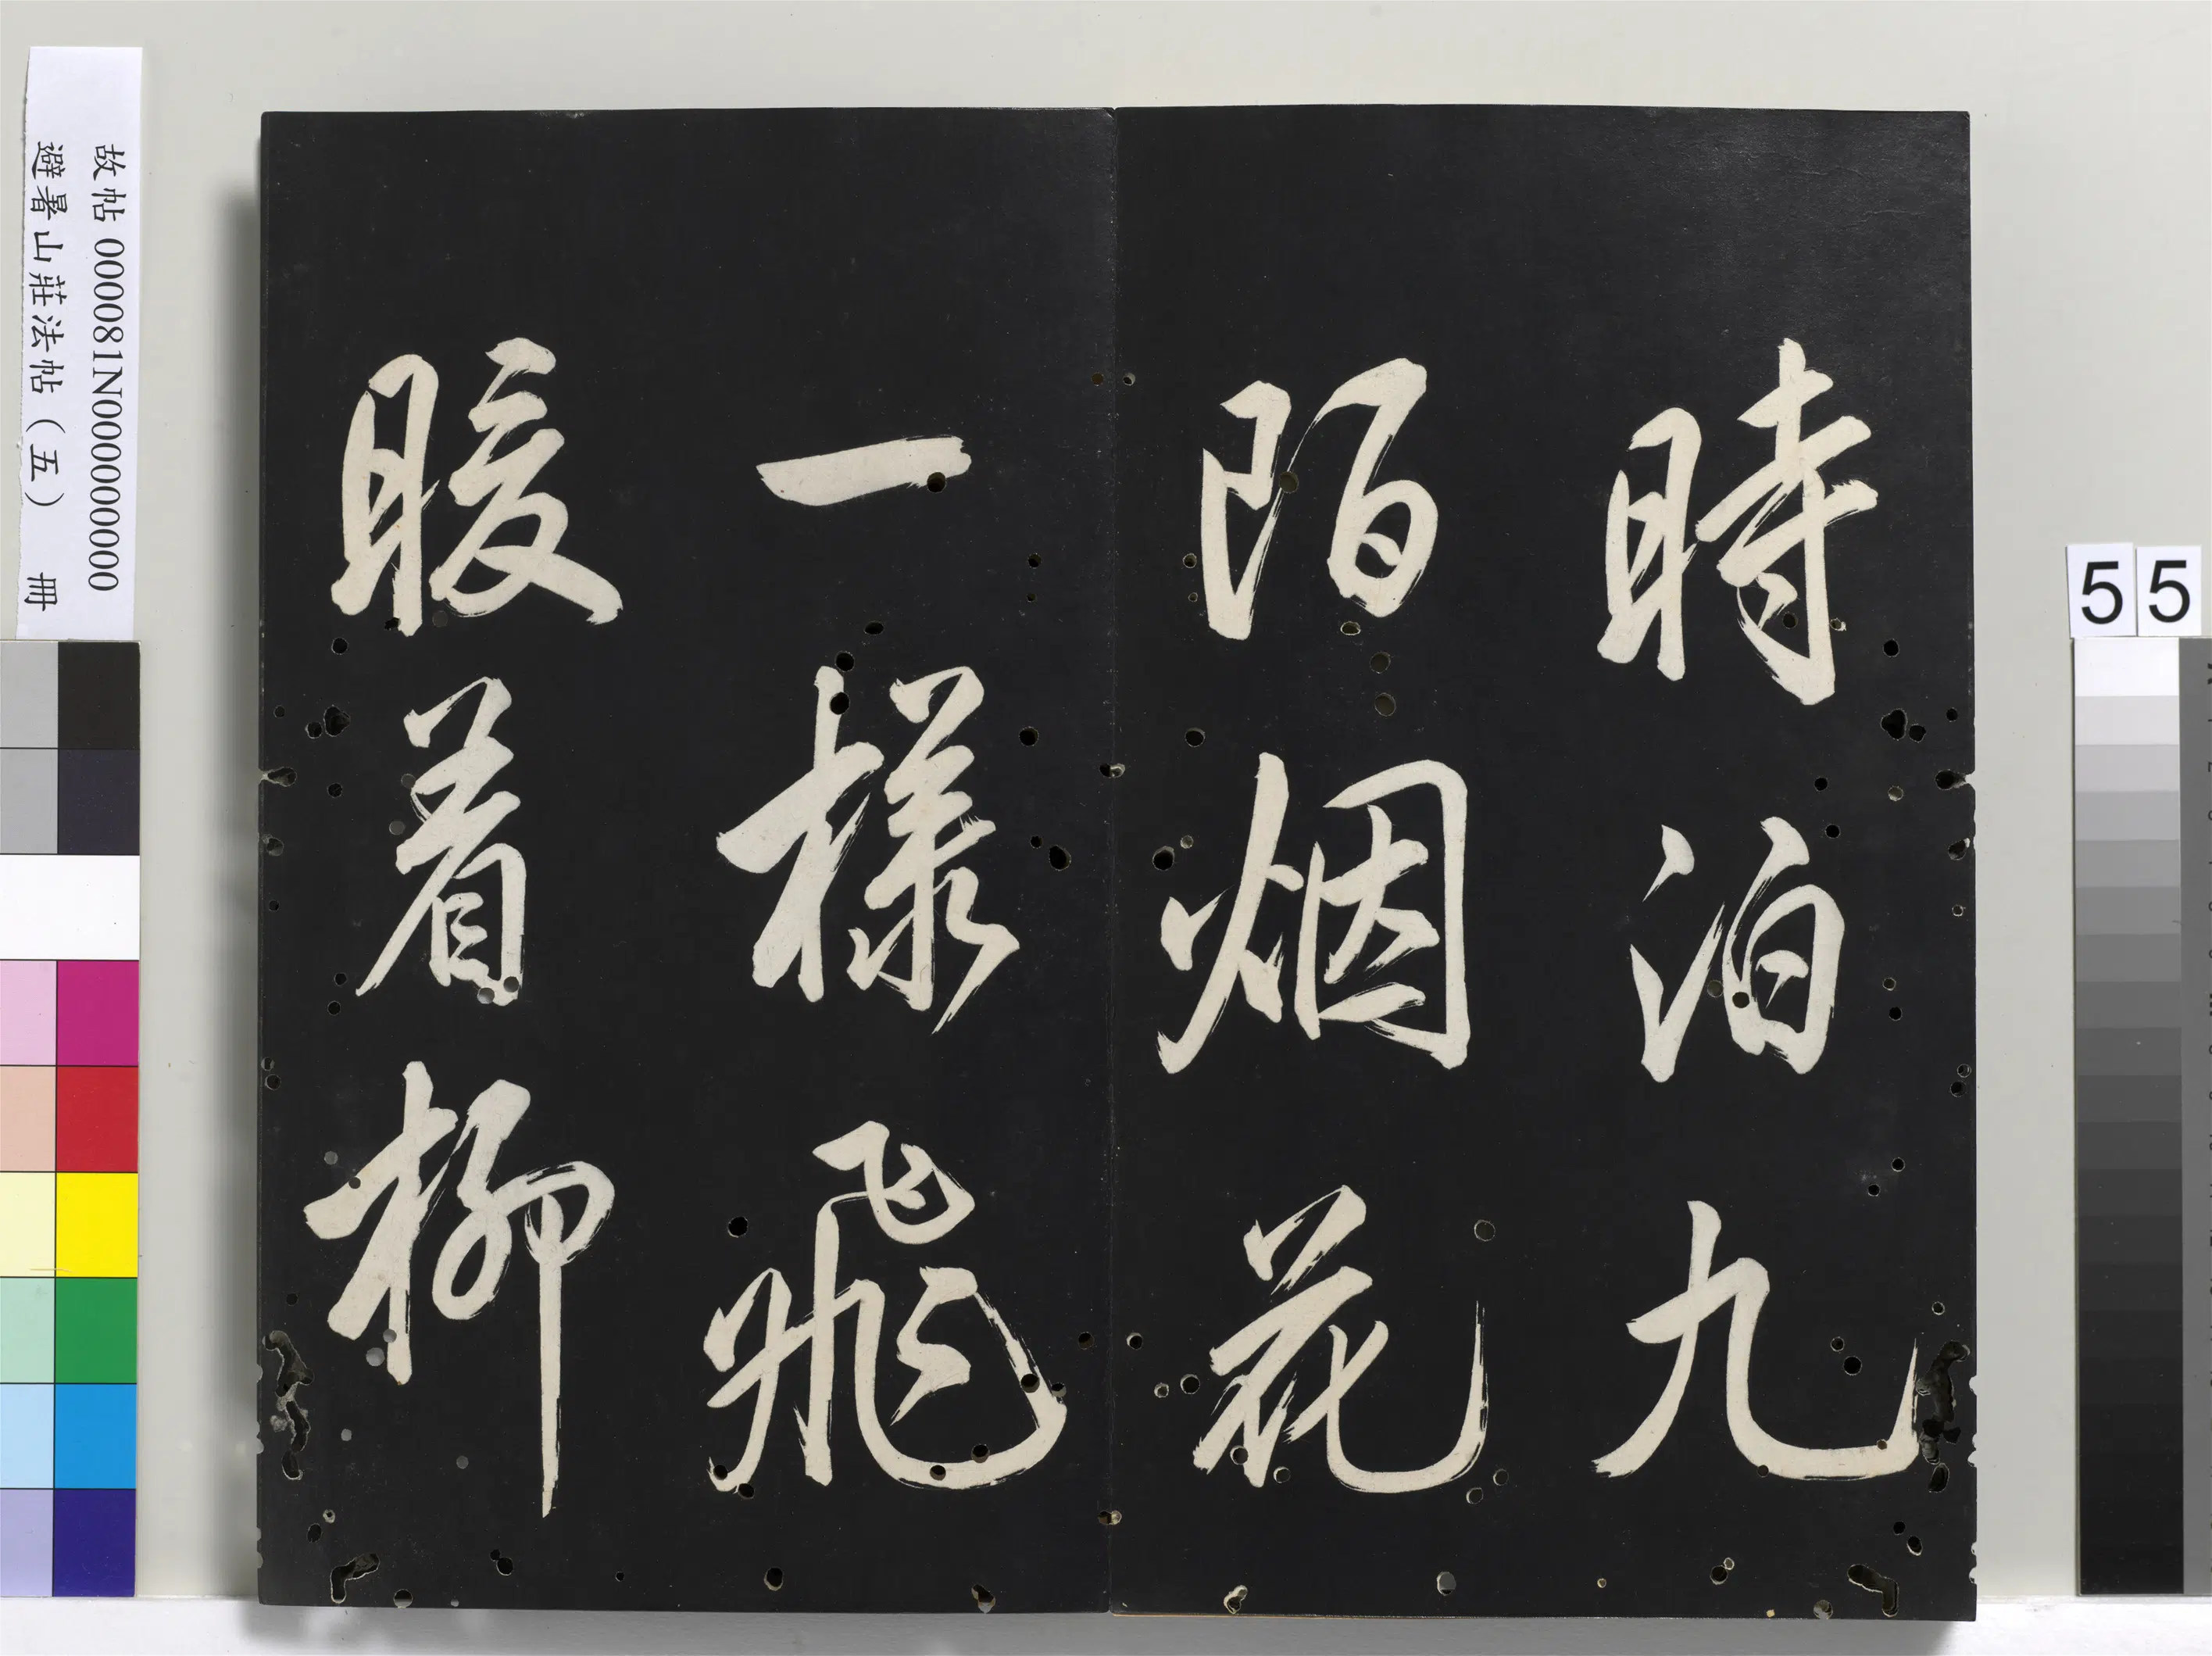 時泊九
陌烟花
一樣飛
暖着柳
故帖 000081N000000000
避暑山莊法帖（五） 冊
55